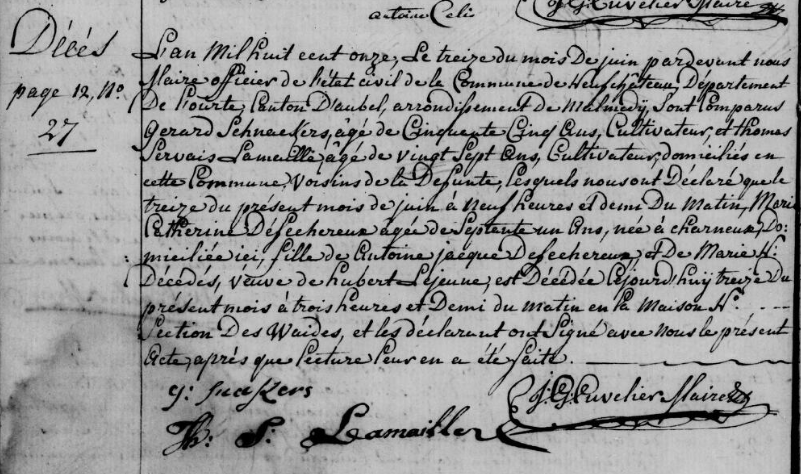 antoine Celis
J. G. Cuvelier Maire
Décés
page 12, No.
27
L'an Mil huit cent onze, Le treize du mois De juin pardevant nous
Maire officier de l'état civil de la Commune de Neufchâteau, Département
De L'ourte, Canton D'aubel, arrondissement de Malmedy, sont Comparus
Gerard Schnackers, âgé de Cinquente Cinq Ans, Cultivateur, et thomas
Servais Lamaille, âgé de vingt Sept Ans, Cultivateur, domiciliés en
cette Commune, Voisins de la Defunte, Lesquels nous ont Déclaré que le
treize du présent mois de juin à Neuf heures et demi Du Matin, Marie
Catherine Defechereux agée de Septente un Ans, née à charneux, Do-
miciliée ici, fille de Antoine jacque Defechereux, et De Marie H.
Décédés, Veuve de hubert Lejeune, est Décédée Cejourd'huy treize Du
présent mois à trois heures et Demi du matin en la Maison No.
Section Des Waides, et les déclarant ont Signé avec Nous le présent
Acte, aprés que Lecture Leur en a été faite.
g: snakers
J. G. Cuvelier Maire
Th: S: Lamailler